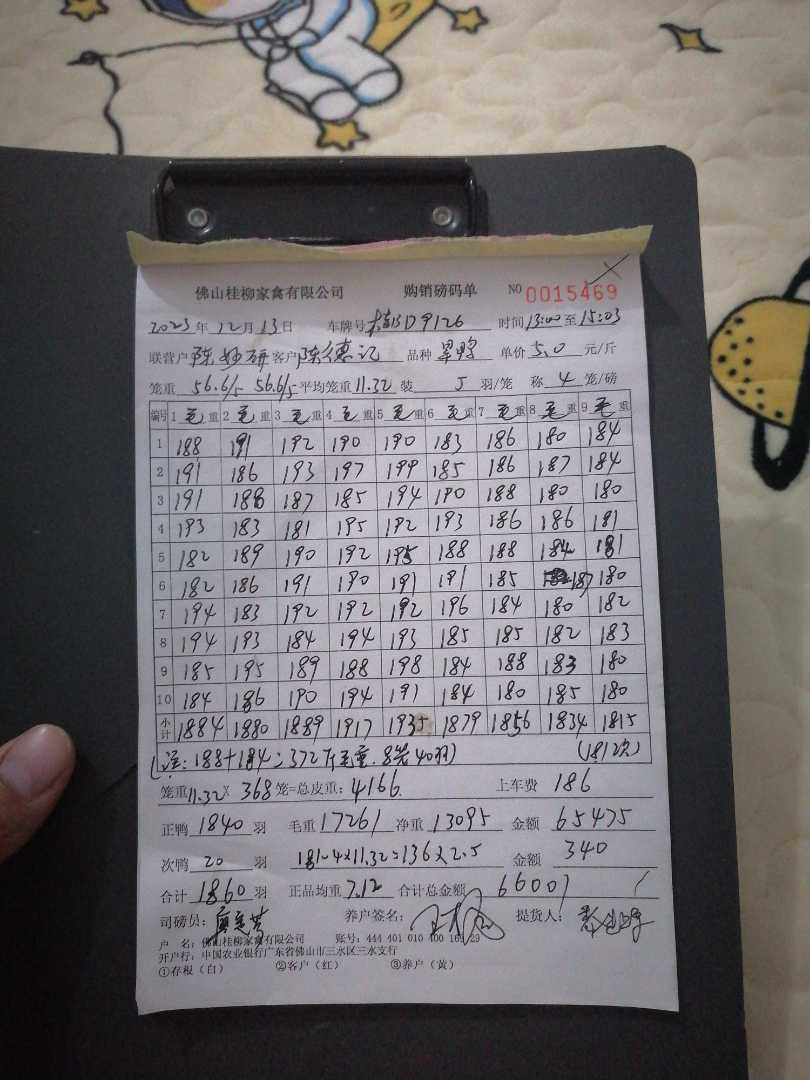 佛山桂柳家禽有限公司 购销磅码单 NO 0015469
2023年12月13日 车牌号 D9126 时间13:00至15:03
联营户 陈妙研 客户 陈德记 品种 单价5.0元/斤
笼重 56.6/5 56.6/5 平均笼重11.32 装 5 羽/笼 称 4 笼/磅
编号 1毛重 2毛重 3毛重 4毛重 5毛重 6毛重 7毛重 8毛重 9毛重
1 188 191 192 190 190 183 186 180 184
2 191 186 193 197 199 185 186 187 184
3 191 188 187 185 194 190 188 180 180
4 193 183 181 195 192 193 186 186 181
5 182 189 190 192 195 188 188 184 181
6 182 186 191 190 191 191 185 187 180
7 194 183 192 192 192 196 184 180 182
8 194 193 184 194 193 185 185 182 183
9 185 195 189 188 198 184 188 183 180
10 184 186 190 194 191 184 180 185 180
小计 1884 1880 1889 1917 1935 1879 1856 1834 1815
(注: 188+184=372斤毛重.8笼40羽) (181次)
笼重11.32× 368笼=总皮重:4166 上车费 186
正鸭 1840 羽 毛重17261 净重13095 金额 65475
次鸭 20 羽 181-4×11.32=136×2.5 金额 340
合计1860羽 正品均重7.12 合计总金额 66001
司磅员: 养户签名: 提货人:
户 名: 佛山桂柳家禽有限公司 账号: 444 401 010 400 16 29
开户行: 中国农业银行广东省佛山市三水区三水支行
①存根(白) ②客户(红) ③养户(黄)